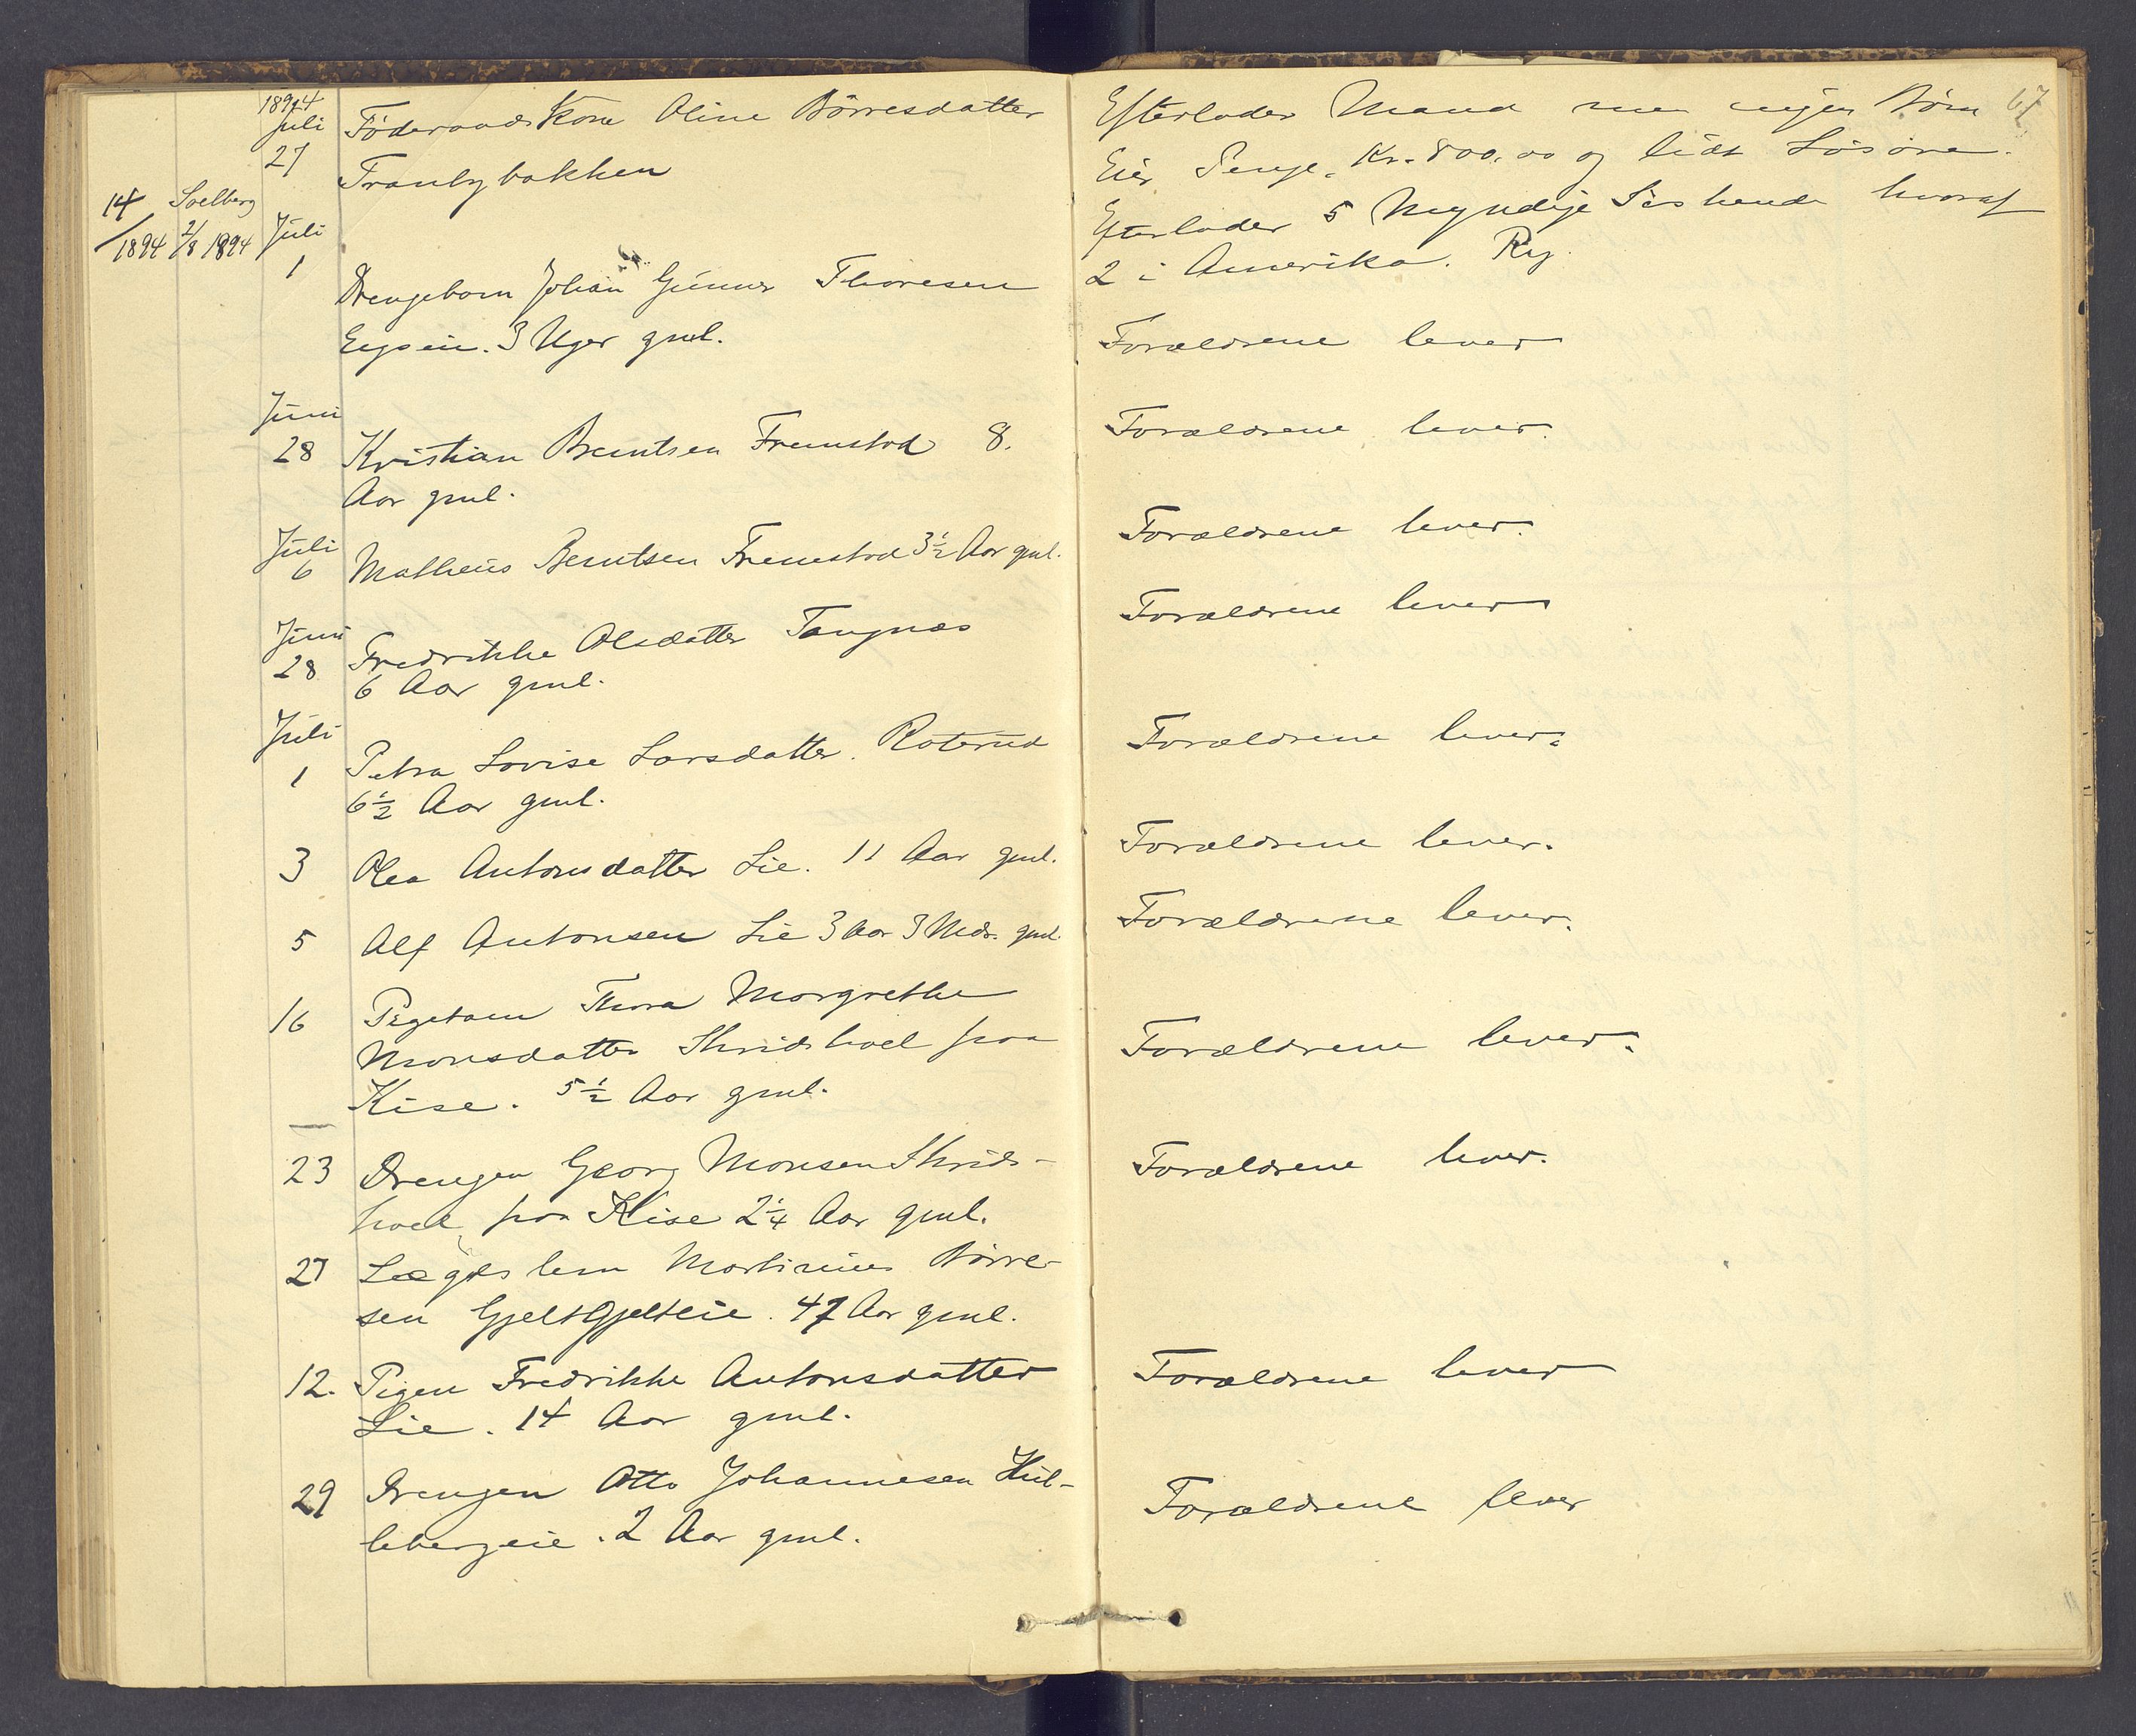 1894
Juli
27
Föderaads Kone Oline Börresdatter
Tranbybakken
14/1894
Solberg
2/8 1894
Juli
1
Drengebarn Johan Gunner Thoresen
3 Uger gml.
Juni
28
Kristian Berntsen Fremstad 8.
Aar gml.
Juli
6
Matheus Berntsen Fremstad 3½ Aar gml.
Juni
28
Fredrikke Olsdatter Tangnæs
6 Aar gml.
Juli
1
Petra Lovise Larsdatter. Roterud
6½ Aar gml.
3
Olea Antonsdatter Lie. 11 Aar gml.
5
Alf Antonsen Lie 3 Aar 3 Mdr. gml.
16
Pigebarn Thora Margrethe
Monsdatter Skridshoel fra
Kise. 5½ Aar gml.
23
Drengen Georg Monsen Skrids-
hoel, fra Kise 2¼ Aar gml.
27
Lægdslem Martinius Börre-
sen Gjeltgjelteie. 47 Aar gml.
12.
Pigen Fredrikke Antonsdatter
Lie. 14 Aar gml.
29
Drengen Otto Johannesen Hul-
lebergeie. 2 Aar gml.
67
Efterlader Mand men ingen Börn
Eier Penge. Kr. 800.00 og lidt Lösöre.
Efterlader 5 Myndige Söskende hvoraf
2 i Amerika.
Forældrene lever
Forældrene lever.
Forældrene lever.
Forældrene lever
Forældrene lever.
Forældrene lever.
Forældrene lever.
Forældrene lever.
Forældrene lever.
Forældrene lever
Forældrene lever